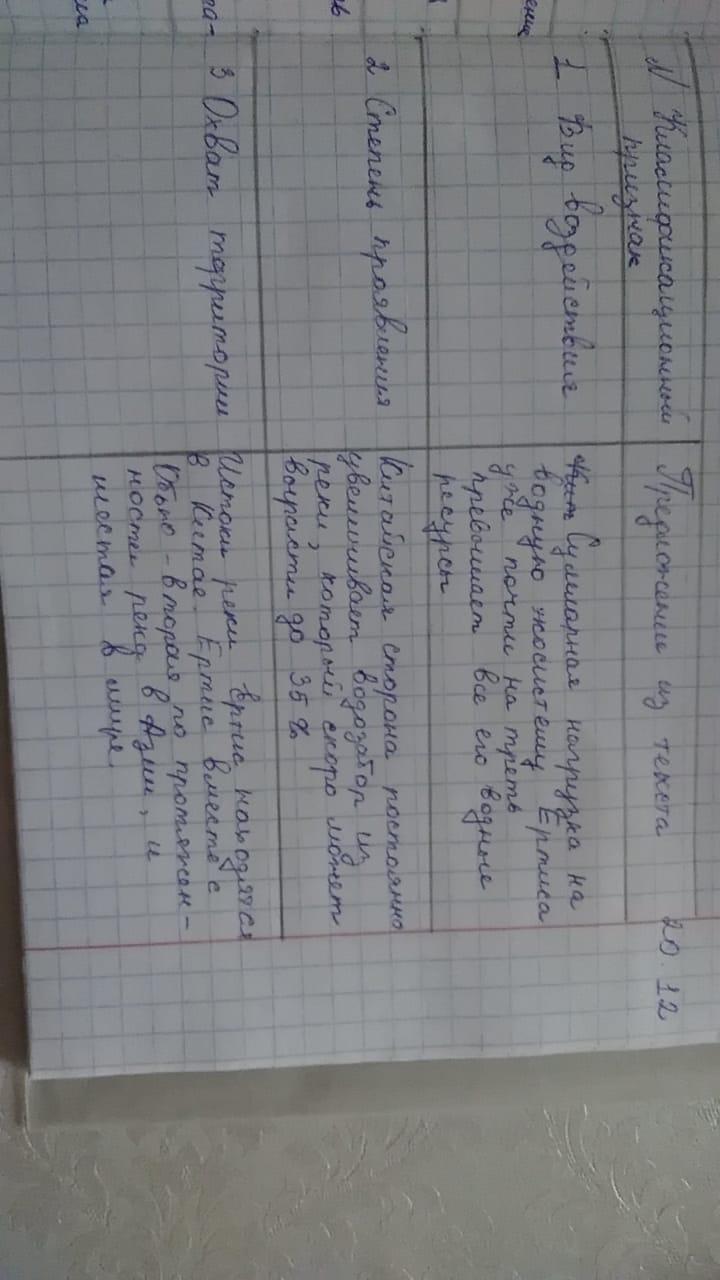 20.12
N Классификационный Предложение из текста
признак
1 Вид воздействия Суммарная нагрузка на
водную экосистему Ертиса
уже почти на треть
превышает все его водные
ресурсы
2 Степень проявления Китайская сторона постоянно
увеличивает водозабор из
реки, который скоро может
вырасти до 35%
3 Охват территории Истоки реки Ертис находятся
в Китае. Ертис вместе с
Обью - вторая по протяжен-
ности река в Азии, и
шестая в мире